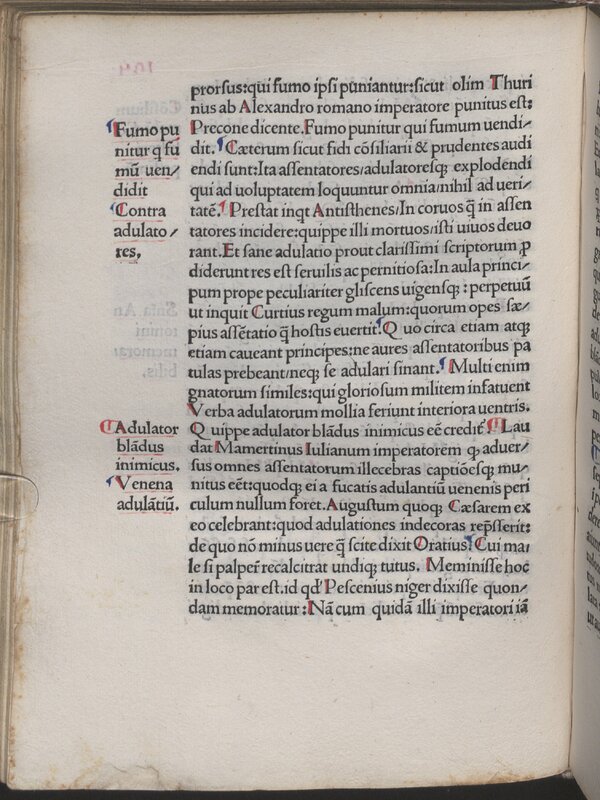 prorsus:qui fumo ipsi puniantur:sicut olim Thuri
nus ab Alexandro romano imperatore punitus est:
Precone dicente.Fumo punitur qui fumum uendi/
dit. Cæterum sicut fidi cõsiliarii & prudentes audi
endi sunt:Ita assentatores/adulatoresq; explodendi
qui ad uoluptatem loquuntur omnia/nihil ad ueri/
tatẽ. Prestat inqt Antisthenes/In coruos q̃ in assen
tatores incidere:quippe illi mortuos/isti uiuos deuo
rant.Et sane adulatio prout clarissimi scriptorum ꝓ
diderunt res est seruilis ac pernitiosa:In aula princi/
pum prope peculiariter gliscens uigensq; : perpetuũ
ut inquit Curtius regum malum:quorum opes sæ/
pius assẽtatio q̃ hostis euertit. Quo circa etiam atq;
etiam caueant principes:ne aures assentatoribus pa
tulas prebeant/neq; se adulari sinant. Multi enim
gnatorum similes:qui gloriosum militem infatuent
Verba adulatorum mollia feriunt interiora uentris.
Quippe adulator blãdus inimicus eẽ credit̃. Lau
dat Mamertinus Iulianum imperatorem ꝙ aduer/
sus omnes assentatorum illecebras captiõesq; mu/
nitus eẽt:quodq; ei a fucatis adulantiũ uenenis peri
culum nullum foret.Augustum quoq; Cæsarem ex
eo celebrant:quod adulationes indecoras rep̃sserit:
de quo nõ minus uere q̃ scite dixit Oratius. Cui ma/
le si palper̃ recalcitrat undiq; tutus. Meminisse hoc
in loco par est.id qd' Pescenius niger dixisse quon/
dam memoratur:Nã cum quidã illi imperatori iã
Fumo pu
nitur q fu
mũ uen/
didit
Contra
adulato/
res.
Adulator
blãdus
inimicus.
Venena
adulãtiũ.